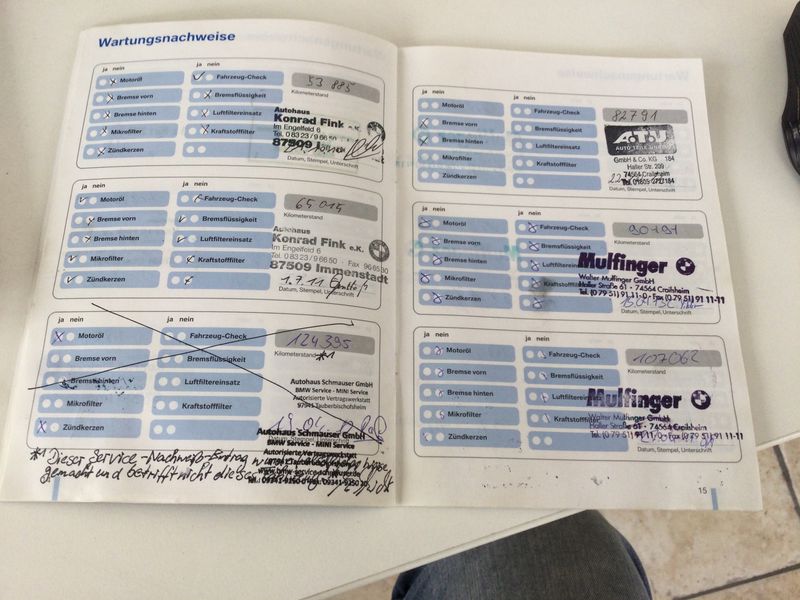 Wartungsnachweise
ja nein ja nein
Motoröl Fahrzeug-Check 53 885
Bremse vorn Bremsflüssigkeit Kilometerstand
Bremse hinten Luftfiltereinsatz
Mikrofilter Kraftstofffilter
Zündkerzen
Autohaus
Konrad Fink e.K.
Im Engelfeld 6
Tel. 0 83 23 / 9 66 50
87509
Datum, Stempel, Unterschrift
ja nein ja nein
Motoröl Fahrzeug-Check 65 015
Bremse vorn Bremsflüssigkeit Kilometerstand
Bremse hinten Luftfiltereinsatz
Mikrofilter Kraftstofffilter
Zündkerzen
Autohaus
Konrad Fink e.K.
Im Engelfeld 6
Tel. 0 83 23 / 9 66 50 · Fax 96 65 30
87509 Immenstadt
1.7.11
Datum, Stempel, Unterschrift
ja nein ja nein
Motoröl Fahrzeug-Check 124395
Bremse vorn Bremsflüssigkeit Kilometerstand *1
Bremse hinten Luftfiltereinsatz
Mikrofilter Kraftstofffilter
Zündkerzen
Autohaus Schmauser GmbH
BMW Service - MINI Service
Autorisierte Vertragswerkstatt
97941 Tauberbischofsheim
Autohaus Schmauser GmbH
BMW Service - MINI Service
Autorisierte Vertragswerkstatt
*1 Dieser Service-Nachweiß-Eintrag
gemacht und betrifft nicht
ja nein ja nein
Motoröl Fahrzeug-Check 82791
Bremse vorn Bremsflüssigkeit Kilometerstand
Bremse hinten Luftfiltereinsatz
Mikrofilter Kraftstofffilter
Zündkerzen
A.T.U
AUTO TEILE UNGER
GmbH & Co. KG 184
Haller Str. 209
74564 Crailsheim
Tel. 01805 272184
Datum, Stempel, Unterschrift
ja nein ja nein
Motoröl Fahrzeug-Check 90191
Bremse vorn Bremsflüssigkeit Kilometerstand
Bremse hinten Luftfiltereinsatz
Mikrofilter Kraftstofffilter
Zündkerzen
Mulfinger
Walter Mulfinger GmbH
Haller Straße 61 · 74564 Crailsheim
Tel. (0 79 51) 91 11-0 · Fax (0 79 51) 91 11-11
Datum, Stempel, Unterschrift
ja nein ja nein
Motoröl Fahrzeug-Check 107062
Bremse vorn Bremsflüssigkeit Kilometerstand
Bremse hinten Luftfiltereinsatz
Mikrofilter Kraftstofffilter
Zündkerzen
Mulfinger
Walter Mulfinger GmbH
Haller Straße 61 · 74564 Crailsheim
Tel. (0 79 51) 91 11-0 · Fax (0 79 51) 91 11-11
Datum, Stempel, Unterschrift
15